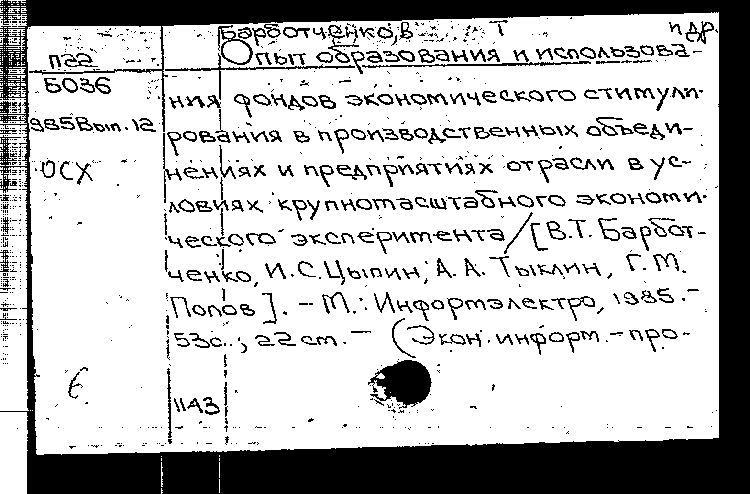 Барботченко, В Т и др.
Опыт образования и использова-
ния фондов экономического стимули-
рования в производственных объеди-
нениях и предприятиях отрасли в ус-
ловиях крупномасштабного экономи-
ческого эксперимента / [В.Т. Барбот-
ченко, И.С. Цыпин, А.А. Тыклин, Г.М.
Попов]. – М.: Информэлектро, 1985. –
53с., 22 см. – (Экон. информ. – про-
П22
Б036
985 Вып. 12
ОСХ
6
1143